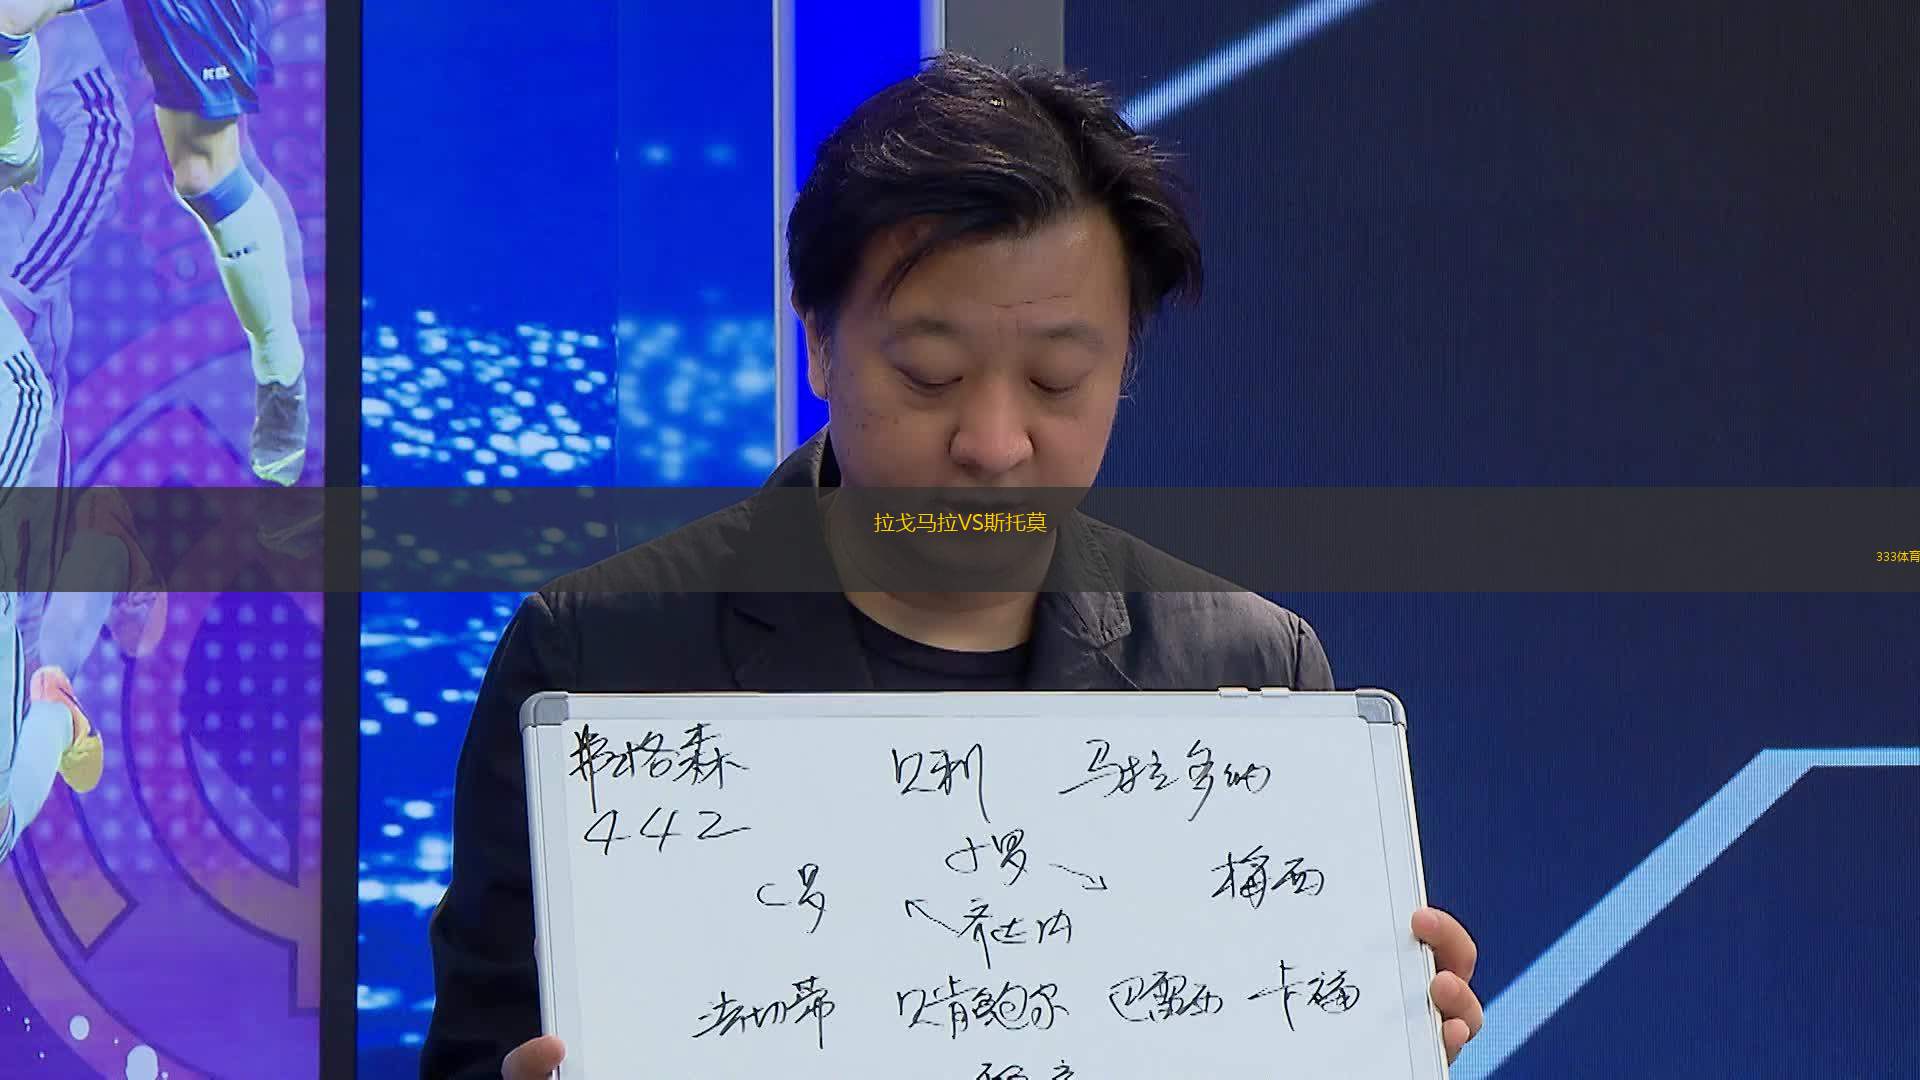 拉戈马拉VS斯托莫
333体育
弗格森 贝利 马拉多纳
442
小罗
C罗 梅西
齐达内
法切蒂 贝肯鲍尔 巴雷西 卡福